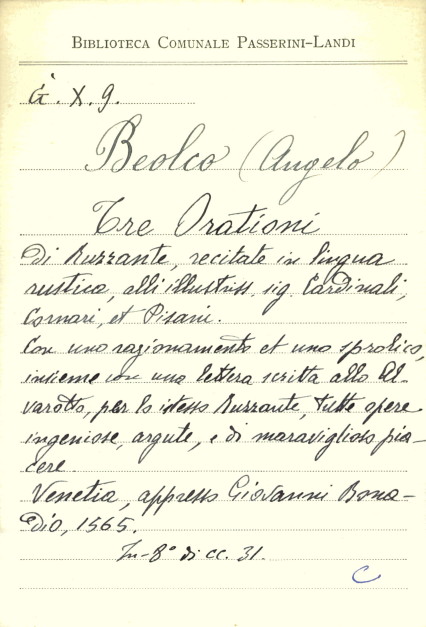 BIBLIOTECA COMUNALE PASSERINI-LANDI
G. X. 9.
Beolco (Angelo)
Tre Orationi
Di Ruzzante, recitate in lingua
rustica, alli illustriss. sig. Cardinali,
Cornari, et Pisani.
Con uno ragionamento et uno sprolico,
insieme con una lettera scritta allo Al-
varotto, per lo istesso Ruzzante, tutte opere
ingeniose, argute, e di maraviglioso pia-
cere.
Venetia, appresso Giovanni Bona-
dio, 1565.
In-8° di cc. 31.
C